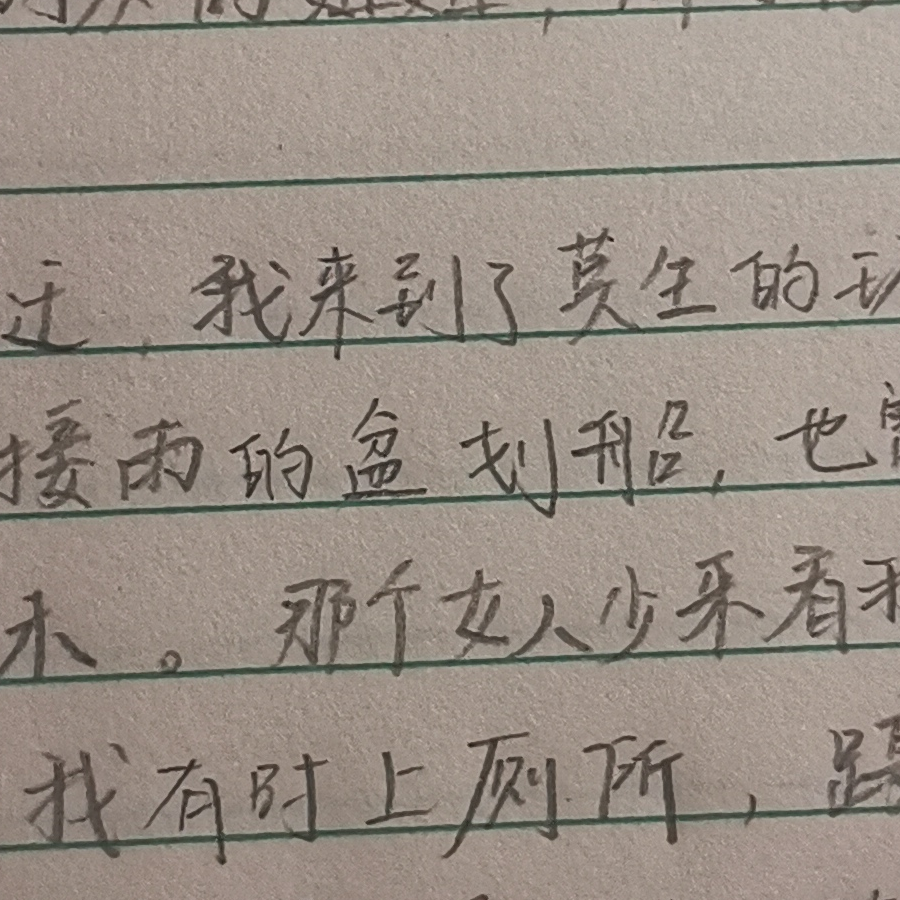 迁,我来到了莫生的
接雨的盆划船,也
。那个女人少来看
我有时上厕所,